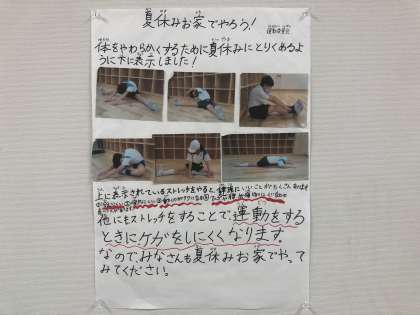 夏休みお家でやろう!
運動委員会
体をやわらかくするために夏休みにとりくめるよ
うに下に表示しました!
上に表示されているストレッチをやると、健康にいいことがたくさんあります
他にもストレッチをすることで、運動をする
ときにケガをしにくくなります。
なので、みなさんも夏休みお家でやって
みてください。